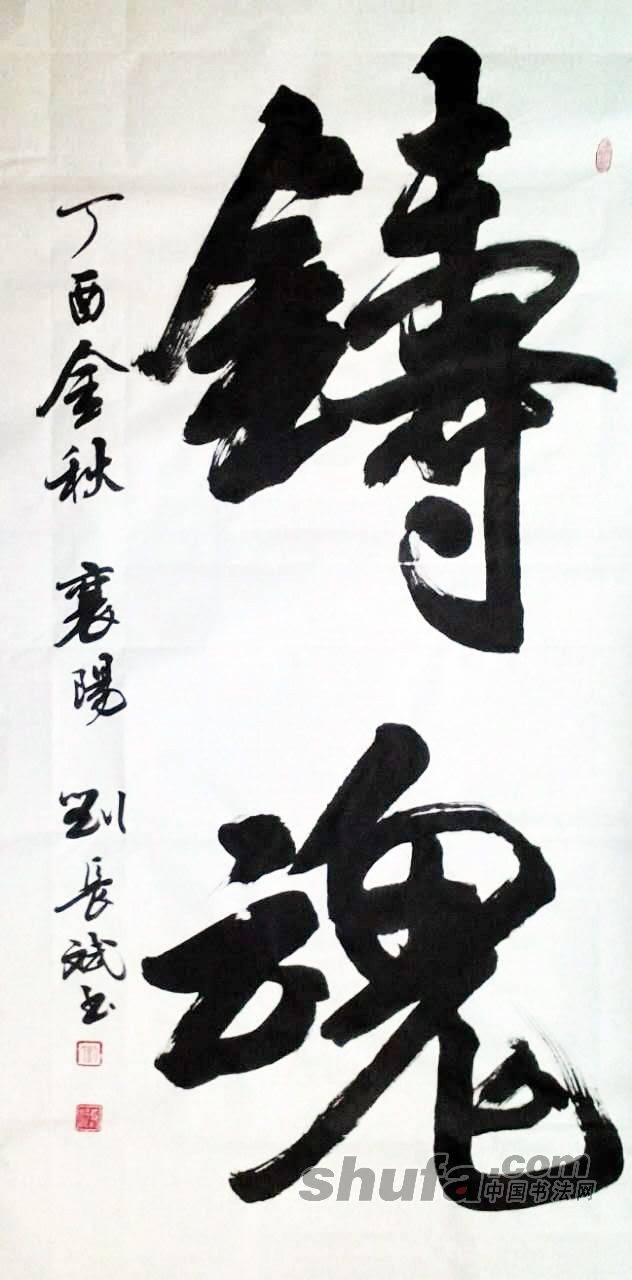 鑄魂
丁酉金秋 襄陽 劉長斌书
shufa.com
中国书法网